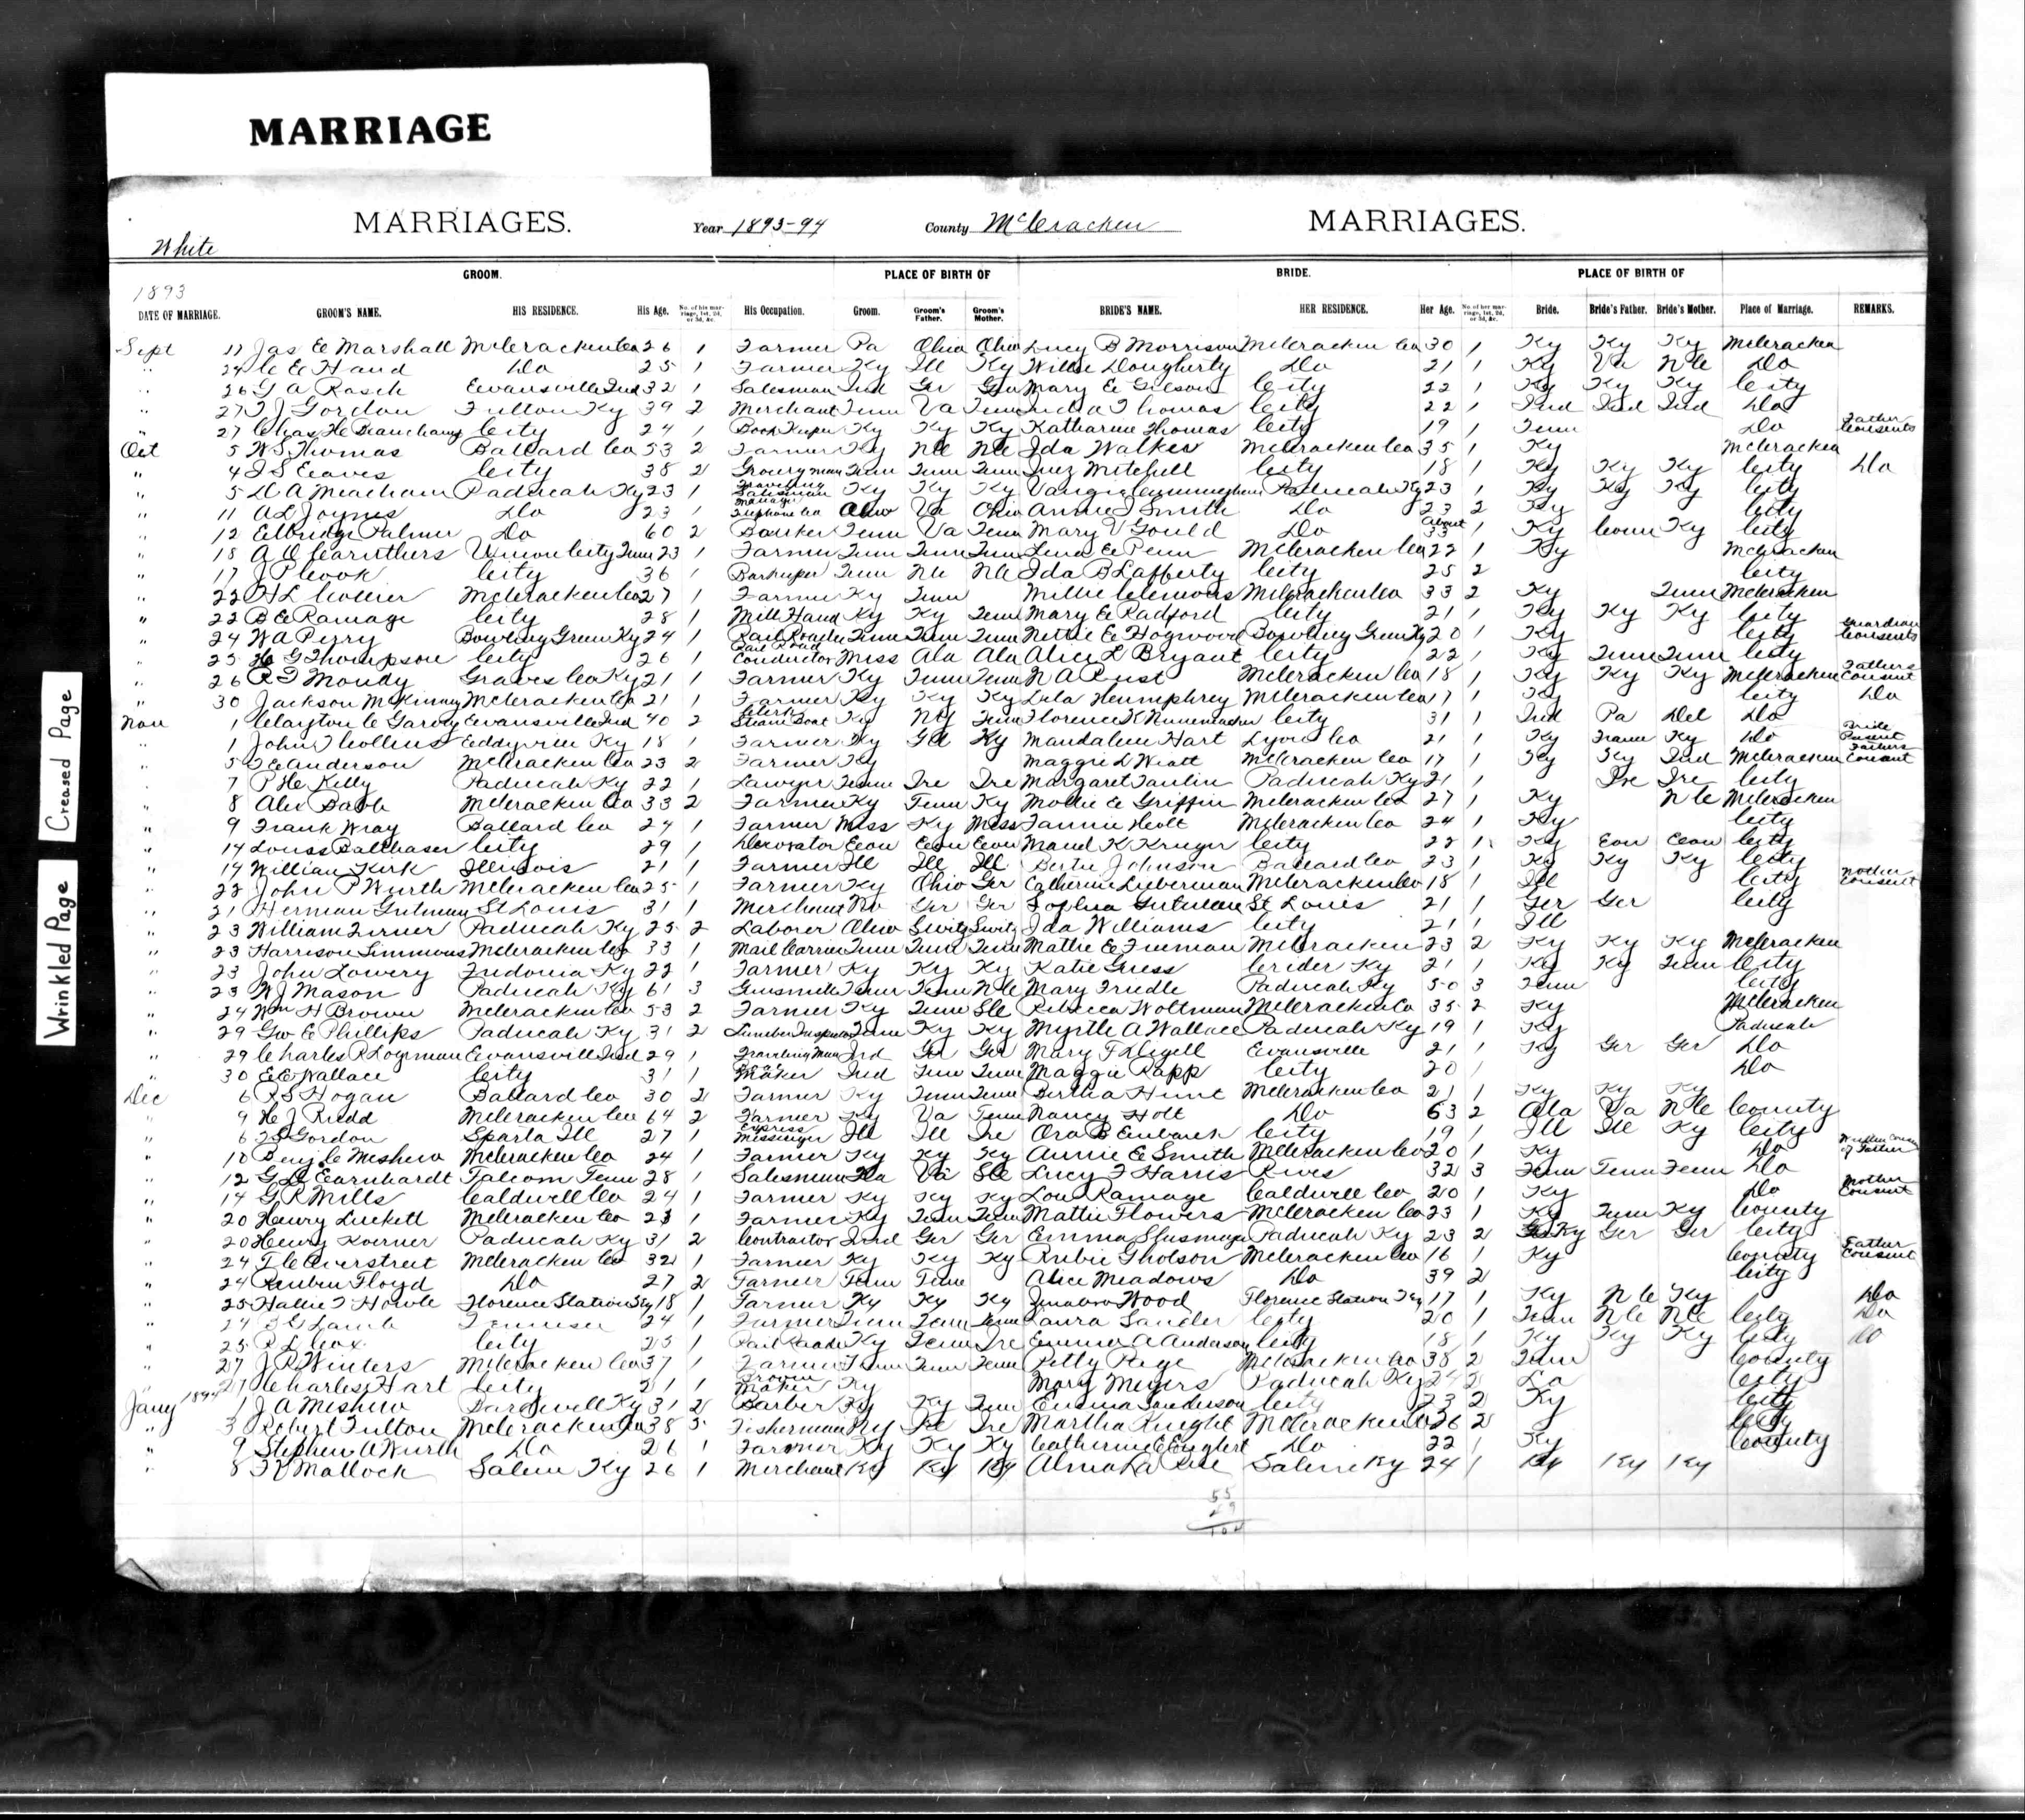 MARRIAGE
MARRIAGES. Year 1893-94 County McCracken MARRIAGES.
White
GROOM. PLACE OF BIRTH OF BRIDE. PLACE OF BIRTH OF
1893
DATE OF MARRIAGE. GROOM'S NAME. HIS RESIDENCE. His Age. No. of his marriage, 1st, 2d, or 3d, &c. His Occupation. Groom. Groom's Father. Groom's Mother. BRIDE'S NAME. HER RESIDENCE. Her Age. No. of her marriage, 1st, 2d, or 3d, &c. Bride. Bride's Father. Bride's Mother. Place of Marriage. REMARKS.
Sept 17 Jas E Marshall McCracken Co 26 1 Farmer Pa Ohio Ohio Lucy B Morrison McCracken Co 30 1 Ky Ky Ky McCracken
" 24 C E Hand Do 25 1 Farmer Ky Ill Ky Willie Dougherty Do 21 1 Ky Va N C Do
" 26 G A Rasch Evansville Ind 32 1 Salesman Ind Ger Ger Mary E Gilson City 22 1 Ky Ky Ky City
" 27 T J Gordon Fulton Ky 39 2 Merchant Tenn Va Tenn India Thomas City 22 1 Ind Ind Ind Do
" 27 Chas H Beauchamp City 24 1 Book Keeper Ky Ky Ky Katharine Thomas City 19 1 Tenn Do Father Consents
Oct 5 W S Thomas Ballard Co 53 2 Farmer Ky N C N C Ida Walker McCracken Co 35 1 Ky McCracken
" 4 J S Eaves City 38 2 Groceryman Tenn Tenn Tenn Inez Mitchell City 18 1 Ky Ky Ky City Do
" 5 D A Meacham Paducah Ky 23 1 Traveling Salesman Ky Ky Ky Vangie Cunningham Paducah Ky 23 1 Ky Ky Ky City
" 11 A L Joynes Do 23 1 Manager Telephone Co Ohio Va Ohio Annie J Smith Do 23 2 Ky City
" 12 Elbridge Palmer Do 60 2 Banker Tenn Va Tenn Mary V Gould Do About 33 1 Ky Conn Ky City
" 18 A O Caruthers Union City Tenn 23 1 Farmer Tenn Tenn Tenn Lena E Penn McCracken Co 22 1 Ky McCracken
" 17 J P Cook City 36 1 Barkeeper Tenn N C N C Ida B Lafferty City 25 2 City
" 22 H L Collier McCracken Co 27 1 Farmer Ky Tenn Millie Clemons McCracken Co 33 2 Ky Tenn McCracken
" 22 B E Ramage City 28 1 Mill Hand Ky Ky Tenn Mary E Radford City 21 1 Ky Ky Ky City
" 24 W A Perry Bowling Green Ky 24 1 Rail Roader Tenn Tenn Tenn Nettie E Hogwood Bowling Green Ky 20 1 Ky City Guardian Consents
" 25 H G Thompson City 26 1 Rail Road Conductor Miss Ala Ala Alice L Bryant City 22 1 Ky Tenn Tenn City
" 26 R T Moudy Graves Co Ky 21 1 Farmer Ky Tenn Tenn N A Rust McCracken Co 18 1 Ky Ky Ky McCracken Fathers Consent
" 30 Jackson McKinney McCracken Co 21 1 Farmer Ky Ky Ky Lula Heumphrey McCracken Co 17 1 Ky City Do
Nov 1 Clayton C Garvey Evansville Ind 40 2 Clerk Steam Boat Ky N Y Tenn Florence K Nunemacher City 31 1 Ind Pa Del Do
" 1 John T Collins Eddyville Ky 18 1 Farmer Ky Ga Ky Mandaline Hart Lyon Co 21 1 Ky Ky Do
" 5 T E Anderson McCracken Co 23 2 Farmer Ky Maggie L Wiatt McCracken Co 17 1 Ky Ky Ind McCracken Fathers Consent
" 7 P H Kelly Paducah Ky 22 1 Lawyer Tenn Ire Ire Margaret Tanlin Paducah Ky 21 1 Ire Ire City
" 8 Alex Babb McCracken Co 33 2 Farmer Ky Tenn Ky Mollie E Griffin McCracken Co 27 1 Ky N C McCracken
" 9 Frank Wray Ballard Co 24 1 Farmer Miss Ky Miss Fannie Holt McCracken Co 24 1 Ky City
" 14 Louis Balthaser City 29 1 Decorator Conn Conn Conn Maud K Kruger City 22 1 Ky Conn Conn City
" 14 William Kirk Illinois 21 1 Farmer Ill Ill Ill Bertie Johnson Ballard Co 23 1 Ky Ky Ky City
" 22 John P Wurth McCracken Co 25 1 Farmer Ky Ohio Ger Catherine Lieberman McCracken Co 18 1 Ill City Mother Consent
" 21 Herman Gutman St Louis 31 1 Merchant Mo Ger Ger Sophia Gutman St Louis 21 1 Ger Ger City
" 23 William Zirner Paducah Ky 25 2 Laborer Ohio Switz Switz Ida Williams City 21 1 Ill
" 23 Harrison Simmons McCracken Co 33 1 Mail Carrier Tenn Tenn Tenn Mattie E Freeman McCracken 23 2 Ky Ky Ky McCracken
" 23 John Lowery Fredonia Ky 22 1 Farmer Ky Ky Ky Katie Guess Crider Ky 21 1 Ky Ky Tenn City
" 23 W J Mason Paducah Ky 61 3 Gunsmith Tenn Tenn N C Mary Friedle Paducah Ky 50 3 Tenn City
" 24 Wm H Brown McCracken Co 53 2 Farmer Ky Tenn S C Rebecca Woltman McCracken Co 35 2 Ky McCracken
" 29 Geo E Phillips Paducah Ky 31 2 Lumber Inspector Tenn Ky Ky Myrtle A Wallace Paducah Ky 19 1 Ky Paducah
" 29 Charles R Loyman Evansville Ind 29 1 Traveling Man Ind Ger Ger Mary F Digell Evansville 21 1 Ky Ger Ger Do
" 30 E C Wallace City 31 1 Maker Ind Tenn Tenn Maggie Rapp City 20 1 Do
Dec 6 R S Hogan Ballard Co 30 2 Farmer Ky Tenn Tenn Bertha Hunt McCracken Co 21 1 Ky Ky Ky
" 9 H J Rudd McCracken Co 64 2 Farmer Ky Va Tenn Nancy Holt Do 63 2 Ala Va N C County
" 6 Gordon Sparta Ill 27 1 Express Messenger Ill Ill Ire Ora B City 19 1 Ill Ill Ky City
" 10 Benj C Meshew McCracken Co 24 1 Farmer Ky Ky Ky Annie E Smith McCracken Co 20 1 Ky Do of Father
" 12 G D Earnhardt Falcom Tenn 28 1 Salesman Va S C Lucy F Harris Rives 32 3 Tenn Tenn Tenn Do
" 14 G R Mills Caldwell Co 24 1 Farmer Ky Ky Ky Lou Ramage Caldwell Co 20 1 Ky Do Mother Consent
" 20 Henry Luckett McCracken Co 23 1 Farmer Ky Tenn Tenn Mattie Flowers McCracken Co 23 1 Ky Tenn Ky County
" 20 Henry Koerner Paducah Ky 31 2 Contractor Ind Ger Ger Emma Paducah Ky 23 2 Ky Ger Ger City
" 24 T C Overstreet McCracken Co 32 1 Farmer Ky Ky Ky Rubie Gholson McCracken Co 16 1 Ky County Father Consent
" 24 Reuben Floyd Do 27 2 Farmer Tenn Tenn Alice Meadows Do 39 2 City
" 25 Hallie T Howle Florence Station Ky 18 1 Farmer Ky Ky Ky Wood Florence Station Ky 17 1 Ky N C Ky Do
" 24 Lamb 24 1 Farmer Tenn Tenn Tenn Laura Sander City 20 1 Tenn N C N C City Do
" 25 R L Cox City 23 1 Rail Roader Ky Tenn Ire Emma A Anderson City 18 1 Ky Ky Ky City Do
" 27 J R Winters McCracken Co 37 1 Farmer Tenn Tenn Tenn Petty Page McCracken Co 38 2 Tenn County
" 27 Charles Hart City 21 1 Broom Maker Ky Mary Meyers Paducah Ky 24 2 La City
Jany 1894 1 J A Meshew Bardwell Ky 31 2 Barber Ky Ky Tenn Emma Sanderson City 23 2 Ky City
" 3 Robert Fulton McCracken Co 38 3 Fisherman Ire Martha Knight McCracken Co 26 2 City
" 9 Stephen A Wurth Do 26 1 Farmer Ky Ky Ky Catherine E Englert Do 22 1 Ky County
" 8 Mallock Salem Ky 26 1 Merchant Ky Ky Ky Alma La Rue Salem Ky 24 1 Ky Ky Ky
55
Creased Page
Wrinkled Page